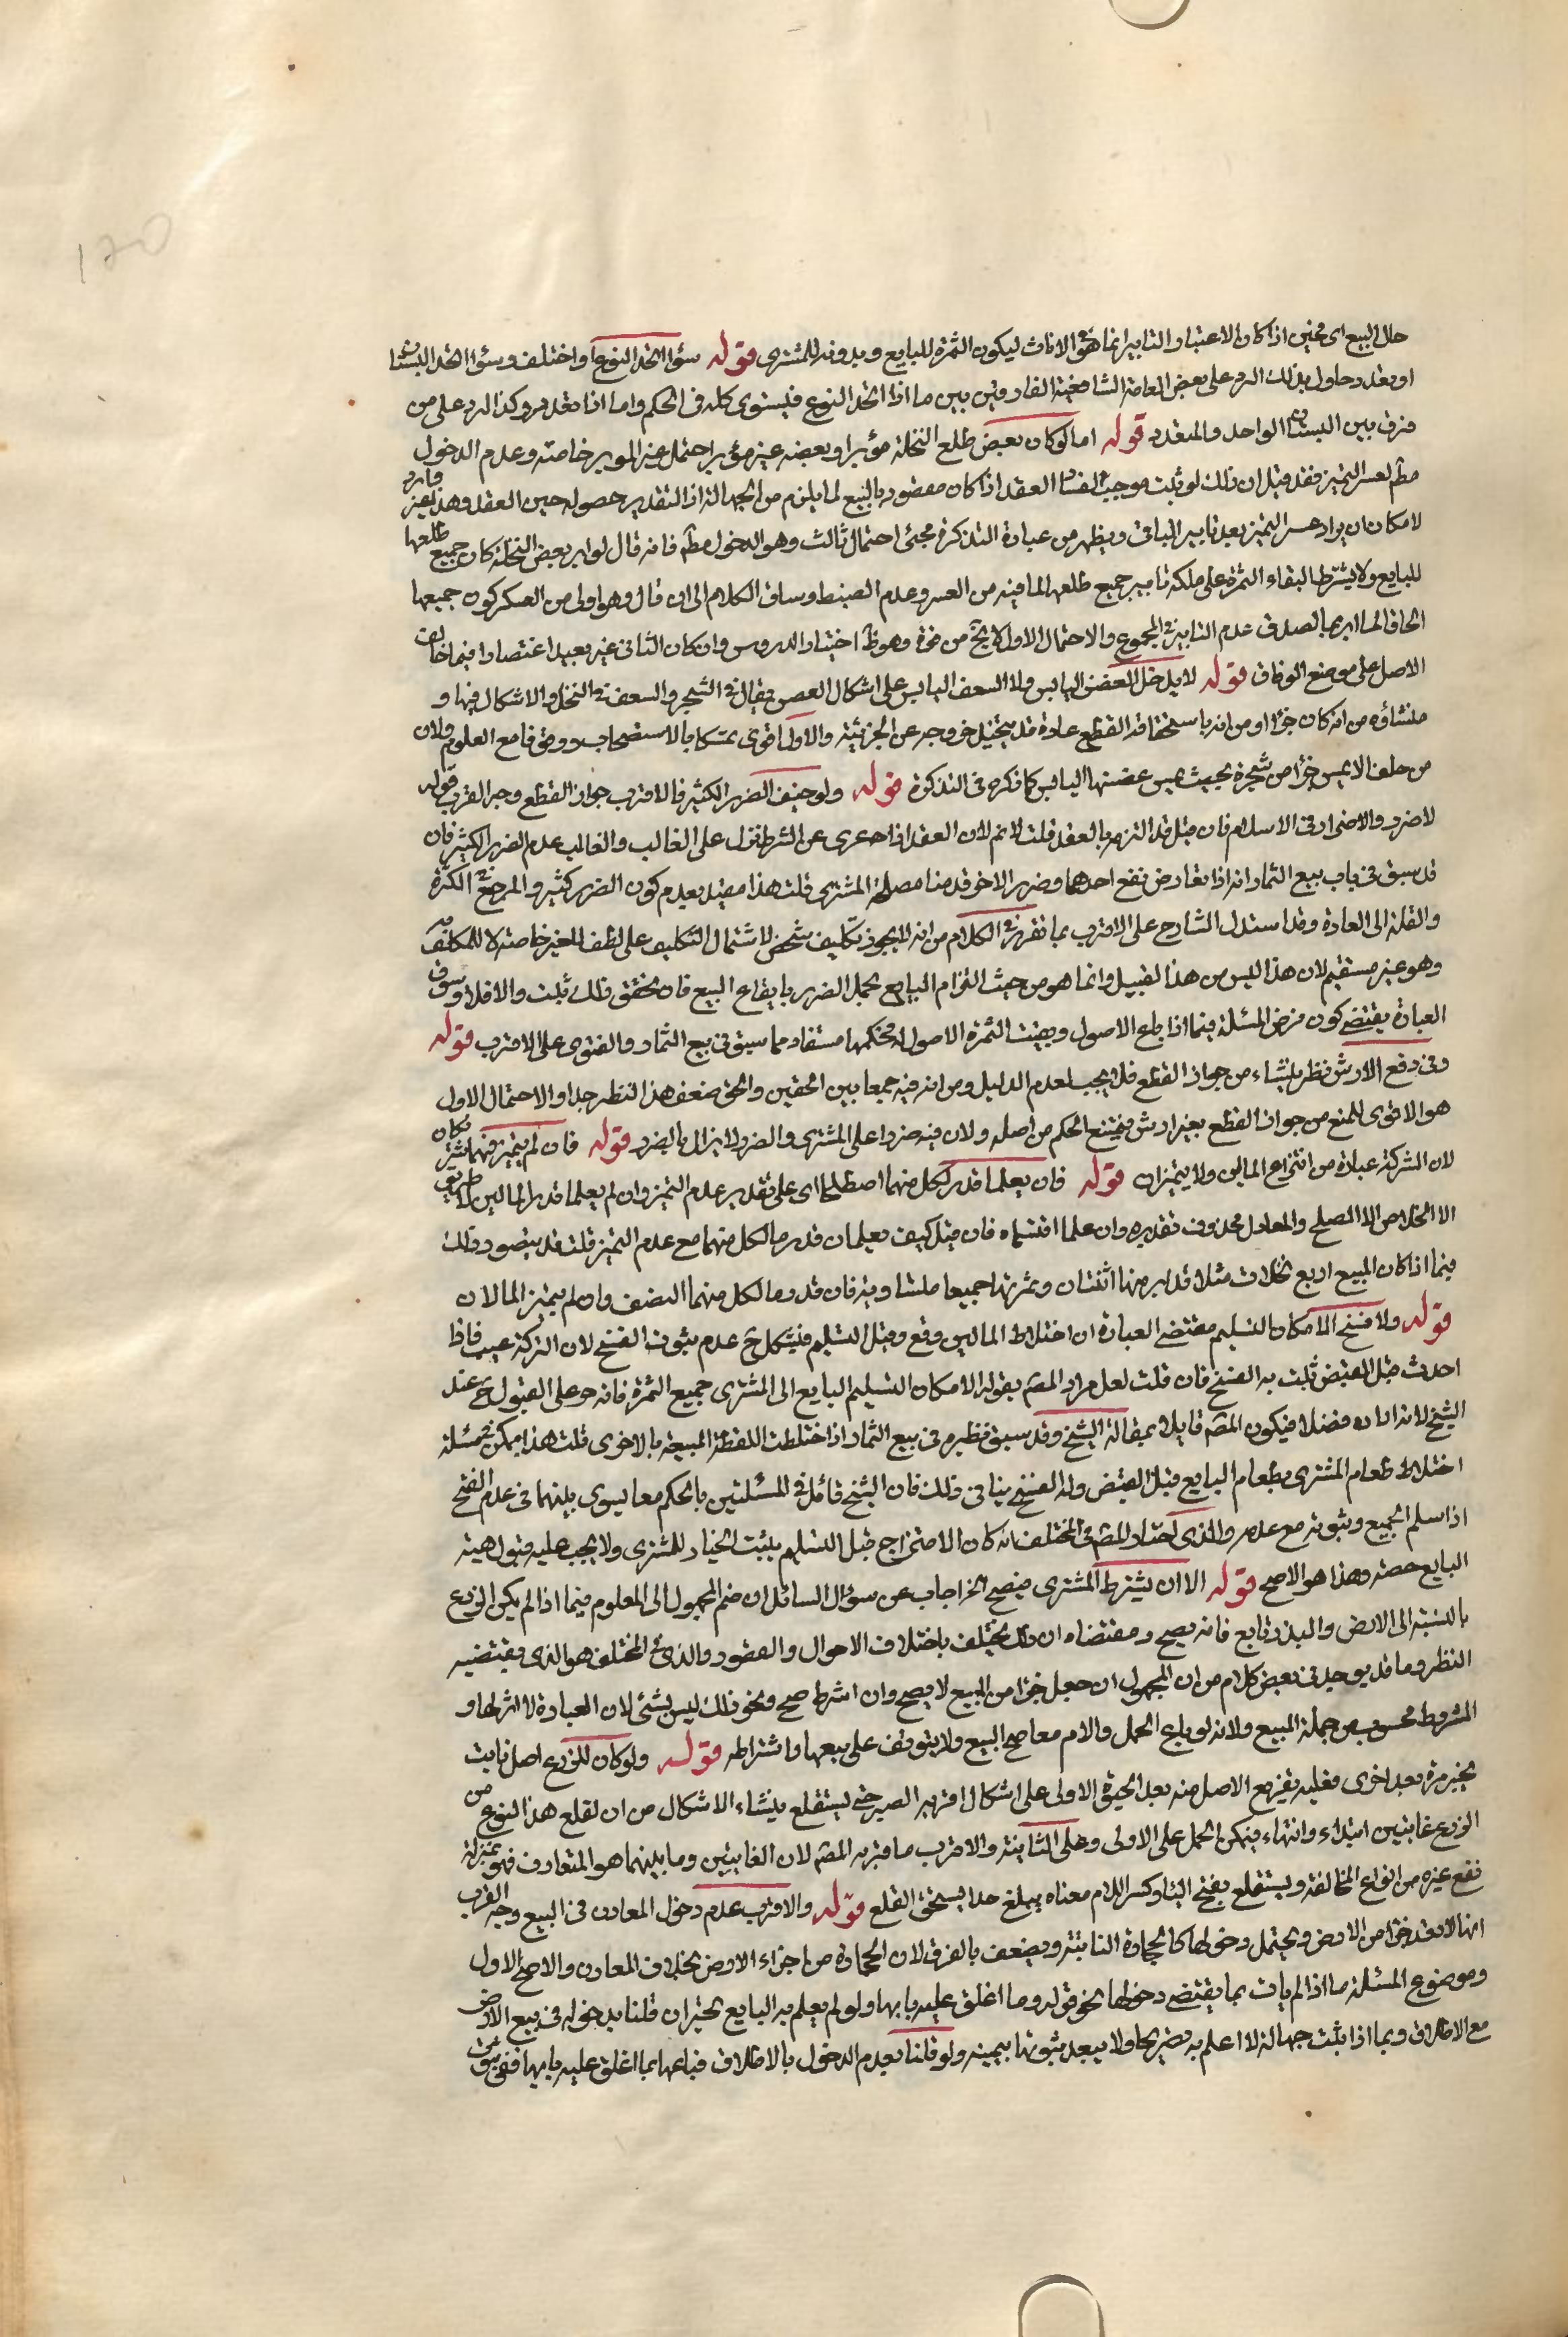 حال البيع اى حين اذا كان الاعتبار والتابير انما هو فى الاناث ليكون الثمرة للبايع وبدونه للمشترى قوله سواء اتحد النوع او اختلف وسواء اتحد البستان
او تعدد حاول بذلك الرد على بعض العامة الشافعية الفارقين بين ما اذا اتحد النوع فيستوى كله فى الحكم واما اذا تعدد وكذا الرد على من
فرق بين البستان الواحد والمتعدد قوله اما لو كان بعض طلع النخلة مؤبرا وبعضه غير مؤبر احتمل غير الموبر خاصة وعدم الدخول
مطم لعسر التميز فقد قيل ان ذلك لو ثبت موجب لفساد العقد اذا كان مقصوده بالبيع لما يلزم من الجهالة اذ التقدير حصوله حين العقد وهذا غير وارد
لامكان ان يراد عسر التميز بعد تابير الباقى ويظهر من عبارة التذكرة مجئ احتمال ثالث وهو الدخول مطم فانه قال لو ابر بعض النخلة كان جميع طلعها
للبايع ولا يشترط لبقاء الثمرة على ملكه تابير جميع طلعها لما فيه من العسر وعدم الضبط وساق الكلام الى ان قال وهو اولى من العكس كون جميعها
الحاقا لما ابر بها لصدق عدم التابير فى المجموع والاحتمال الاول لا يخ من قوة وهو ظ اختيار الدروس وان كان الثانى غير بعيد اقتصارا فيما خالف
الاصل على موضع الوفاق قوله لا يدخل الغصن اليابس ولا السعف اليابس على اشكال الغصن يقال فى الشجر والسعف فى النخل والاشكال فيها و
منشاؤه من انه كان جزءا ومن انه باستحقاقه القطع عادة قد يتخيل خروجه عن الجزئية والاول اقوى تمسكا بالاستصحاب ووقوفا مع العلوم ولان
من حلف لا يمس جزءا من شجرة يحنث بمس غصنها اليابس كما ذكره فى التذكرة قوله ولو خيف الضرر الكثير فالاقرب جواز القطع وجه القرب قوله
لا ضرر ولا اضرار فى الاسلام فان قيل قد التزمه بالعقد قلت لا نم لان العقد اذا عرى عن الشرط نزل على الغالب والغالب عدم الضرر الكثير فان
قد سبق فى باب بيع الثمار انه اذا تعارض نفع احدهما وضرر الاخر قدمنا مصلحة المشترى قلت هذا مقيد بعدم كون الضرر كثير والمرجع فى الكثرة
والقلة الى العادة وقد استدل الشارح على الاقرب بما تقرر فى الكلام من انه لا يجوز تكليف شخص لاشتمال التكليف على لطف للغير خاصة لا للمكلف به
وهو غير مستقيم لان هذا ليس من هذا القبيل وانما هو من حيث التزام البايع تحمل الضرر بايقاع البيع فان تحقق ذلك ثبت والا فلا وسوق
العبارة يقتضى كون فرض المسئلة فيما اذا باع الاصول وبقيت الثمرة لاصول له فحكمها مستفاد مما سبق فى بيع الثمار والفتوى على الاقرب قوله
وفى دفع الارش نظر ينشاء من جواز القطع فلا يجب لعدم الدليل ومن انه فيه جمعا بين الحقين والحق ضعف هذا النظر جدا والاحتمال الاول
هو الاقوى للمنع من جواز القطع بغير ارش فيمتنع الحكم من اصله ولان فيه ضررا على المشترى والضرر لا يزال بالضرر قوله فان لم يتميز فهما شريكان
لان الشركة عبارة من امتزاج المالين ولا يتميزان قوله فان يعلما قدر لكل منهما اصطلحا اى على تقدير عدم التميز وان لم يعلما قدر المالين لا طريق
الى الخلاص الا الصلح والمعادل محذوف تقديره وان علما اقتسماه فان قيل كيف يعلمان قدر ما لكل منهما مع عدم التميز قلت قد يتصور ذلك
فيما اذا كان المبيع اربع نخلات مثلا قد ابر منها اثنتان وثمرتها جميعا متساوية فان قدر ما لكل منهما النصف وان لم يتميز المالان
قوله ولا فسخ لامكان التسليم مقتضى العبارة ان اختلاط المالين وقع وقبل التسليم فيشكل ح عدم ثبوت الفسخ لان الشركة عيب فاذا
احدث قبل القبض ثبت به الفسخ فان قلت لعل مراد المصم بقوله الامكان التسليم البايع الى المشترى جميع الثمرة فانه حق على القبول ح عند
الشيخ لانه زاده فضلا فيكون المصم قايلا بمقالة الشيخ وقد سبق نظيره فى بيع الثمار اذا اختلطت اللقطة المبيعة بالاخرى قلت هذا ممكن ثم مسئلة
اختلاط طعام المشترى بطعام البايع قبل القبض وله الفسخ ينافى ذلك فان الشيخ قائل فى المسئلتين بالحكم معا يسوى بينهما فى عدم الفسخ
اذا سلم الجميع وثبوته مع عدمه والذى اختاره المصم فى المختلف انه كان الامتزاج قبل التسليم يثبت الخيار للمشترى ولا يجب عليه قبول هبة
البايع حصته وهذا هو الاصح قوله الا ان يشترط المشترى فيصح الخ اجاب عن سؤال السائل ان ضم المجهول الى المعلوم فيما اذا لم يكن الزرع
بالنسبة الى الارض والبذر تابع فانه يصح ومقتضاه ان ذلك يختلف باختلاف الاحوال والعقود والذى فى المختلف هو الذى يقتضيه
النظر وما قد يوجد فى بعض كلام من ان المجهول ان جعل جزءا من المبيع لا يصح وان اشرط صح ونحو ذلك ليس بشئ لان العبارة لا اثر لها و
المشروط محسوب من جملة المبيع ولانه لو باع الحمل والام معا صح البيع ولا يتوقف على بيعها واشتراطه قوله ولو كان للزرع اصل ثابت
يجز مرة بعد اخرى فعليه تفريغ الاصل منه بعد الجزة الاولى على اشكال اقربه الصبر حتى يستقلع ينشاء الاشكال من ان لقلع هذا النوع من
الزرع غايتين ابتداء وانتهاء فيمكن الحمل على الاولى وعلى الثانية والاقرب ما قربه المصم لان الغايتين وما بينهما هو المتعارف فهو بمنزلة
نفع غيره من انواع المخالفة ويستقلع بفتح الياء وكسر اللام معناه يبلغ حدا يستحق القلع قوله والاقرب عدم دخول المعادن فى البيع وجه القرب
انها لا تعد جزءا من الارض ويحتمل دخولها كالحجارة النابتة ويضعف بالفرق لان الحجارة من اجزاء الارض بخلاف المعادن والاصح الاول
وموضوع المسئلة ما اذا لم يات بما يقتضى دخولها نحو قوله وما اغلق عليه بابها ولو لم يعلم به البايع تخير ان قلنا بدخوله فى بيع الارض
مع الاطلاق وبما اذا ثبت جهالته لا اعلم به تصريحا ولا يبعد ثبوتها بيمينه ولو قلنا بعدم الدخول بالاطلاق فباعها بما اغلق عليه بابها ففى ثبوت